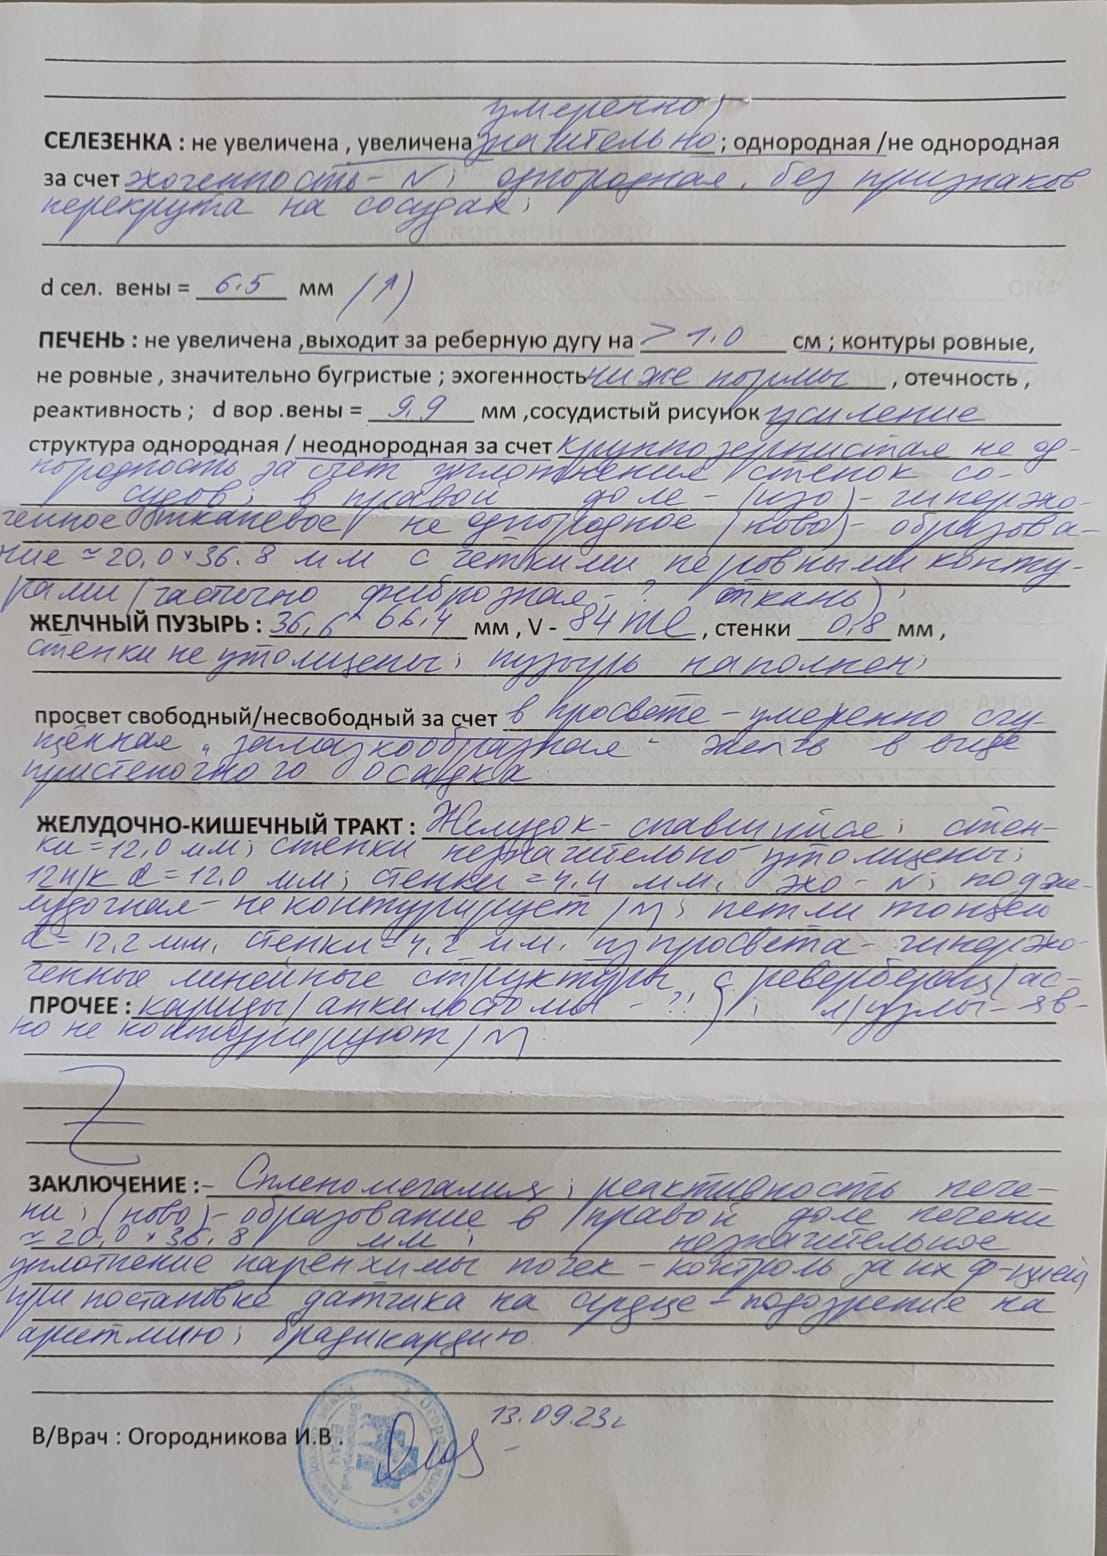 умеренно,
СЕЛЕЗЕНКА : не увеличена , увеличена значительно ; однородная /не однородная
за счет эхогенность - N; однородная, без признаков
перекрута на сосудах;
d сел. вены = 6.5 мм (↑)
ПЕЧЕНЬ : не увеличена ,выходит за реберную дугу на > 1,0 см ; контуры ровные,
не ровные , значительно бугристые ; эхогенность ниже нормы , отечность ,
реактивность ; d вор .вены = 9,9 мм ,сосудистый рисунок усиление
структура однородная / неоднородная за счет крупнозернистая не од-
нородность за счет уплотнения стенок со-
судов; в правой доле - (изо) - гиперэхо-
генное тканевое не однородное (ново) - образова-
ние ≈ 20,0 × 36.8 мм с четкими неровными конту-
рами (частично фиброзная - ? ткань);
ЖЕЛЧНЫЙ ПУЗЫРЬ : 36,6 × 66,4 мм , V - 84 ml , стенки 0,8 мм ,
стенки не утолщены; пузырь наполнен;
просвет свободный/несвободный за счет в просвете - умеренно сгу-
щённая „замазкообразная" желчь в виде
пристеночного осадка.
ЖЕЛУДОЧНО-КИШЕЧНЫЙ ТРАКТ : Желудок - спавшийся; стен-
ки = 12,0 мм; стенки незначительно утолщены;
12п/к d = 12.0 мм; стенки = 4.4 мм, эхо - N; подже-
лудочная - не контурирует / N; петли тонкой
d = 12,2 мм, стенки = 4,2 мм, из просвета - гиперэхо-
генные линейные структуры с ревербераци (ас-
ПРОЧЕЕ : кариды / анкилостомы - ?! ); л/узлы - яв-
но не контурируют / N
ЗАКЛЮЧЕНИЕ :- Спленомегалия; реактивность пече-
ни; (ново) - образование в правой доле печени
≈ 20,0 × 36,8 мм; незначительное
уплотнение паренхимы почек - контроль за их ф-цией,
при постановке датчика на сердце - подозрение на
аритмию; брадикардию.
13.09.23г
В/Врач : Огородникова И.В .